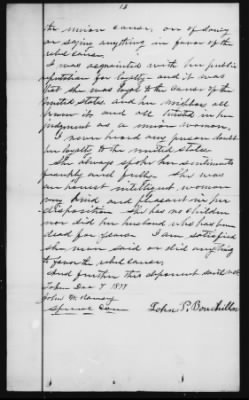 13
the union cause, or of doing
or saying anything in favor of the
rebel cause.
I was acquainted with her public
reputation for loyalty - and it was
that she was loyal to the cause of the
united states and her neighbors all
knew it and all trusted in her
judgment as a union woman.
I never heard any person doubt
her loyalty to the united states
She always spoke her sentiments
frankly and freely - She was
an honest intelligent woman
very kind and pleasant in her
disposition She has no children
nor did her husband who has been
dead for years I am satisfied
she never said or did anything
to favor the rebel cause,
And further this deponent saith not
Taken Dec 7 1877
John M. Ramsey
Special Com John P.